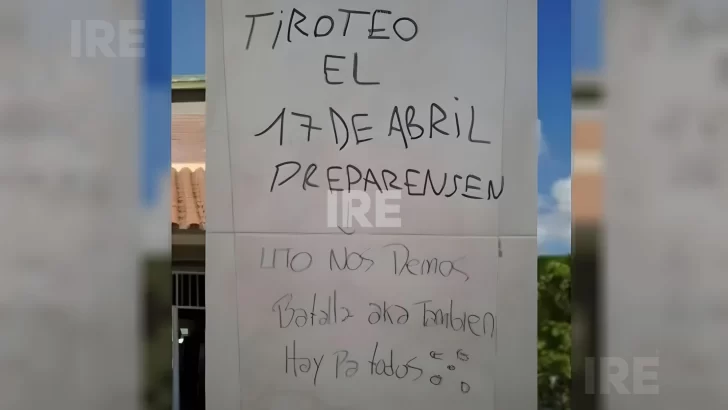 IRE
TIROTEO
EL
17 DE ABRIL
PREPARENSEN
IRE
UTO NOS Demos
Batalla aka Tambien
Hay Pa todos
IRE